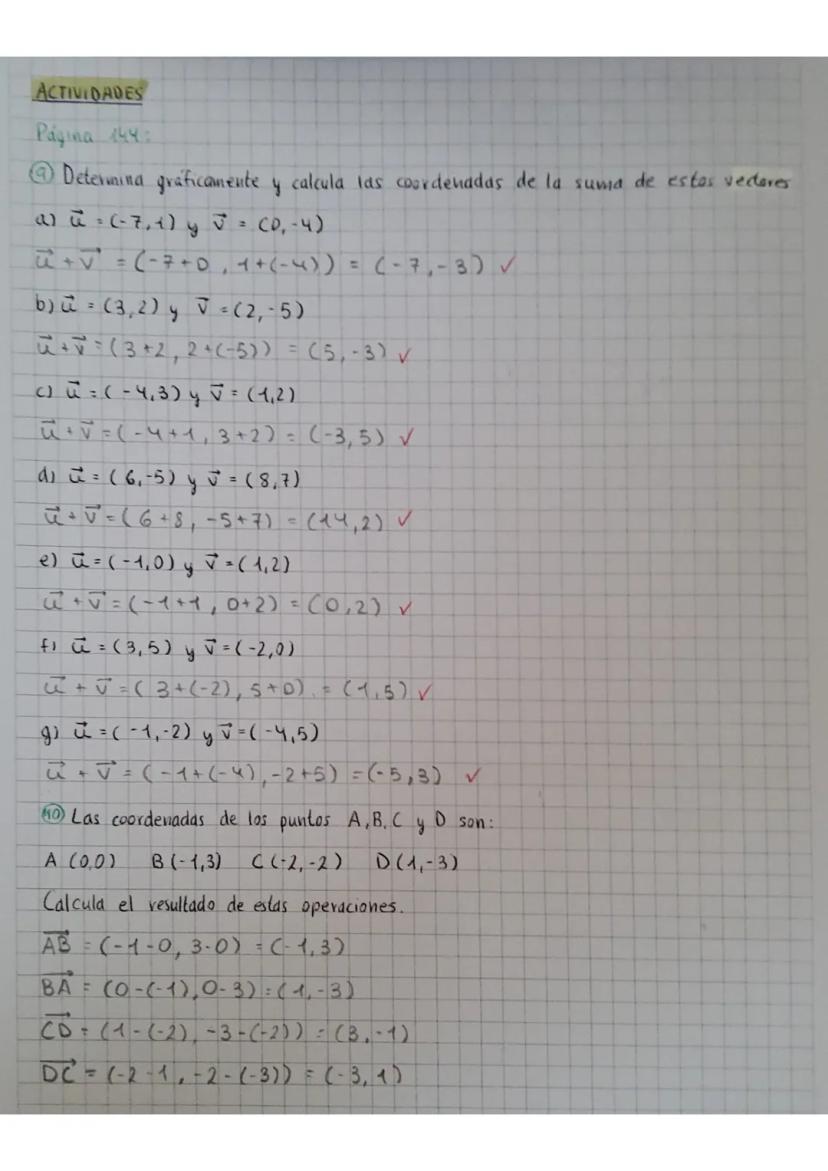 ACTIVIDADES
Página 144:
9 Determina gráficamente y calcula las coordenadas de la suma de estos vectores
a) u⃗ = (-7,1) y v⃗ = (0,-4)
u⃗ + v⃗ = (-7+0, 1+(-4)) = (-7,-3) ✓
b) u⃗ = (3,2) y v⃗ = (2,-5)
u⃗ + v⃗ = (3+2, 2+(-5)) = (5,-3) ✓
c) u⃗ = (-4,3) y v⃗ = (1,2)
u⃗ + v⃗ = (-4+1, 3+2) = (-3,5) ✓
d) u⃗ = (6,-5) y v⃗ = (8,7)
u⃗ + v⃗ = (6+8, -5+7) = (14,2) ✓
e) u⃗ = (-1,0) y v⃗ = (1,2)
u⃗ + v⃗ = (-1+1, 0+2) = (0,2) ✓
f) u⃗ = (3,5) y v⃗ = (-2,0)
u⃗ + v⃗ = (3+(-2), 5+0) = (1,5) ✓
g) u⃗ = (-1,-2) y v⃗ = (-4,5)
u⃗ + v⃗ = (-1+(-4), -2+5) = (-5,3) ✓
10 Las coordenadas de los puntos A, B, C y D son:
A (0,0) B (-1,3) C (-2,-2) D (1,-3)
Calcula el resultado de estas operaciones.
AB⃗ = (-1-0, 3-0) = (-1,3)
BA⃗ = (0-(-1), 0-3) = (1,-3)
CD⃗ = (1-(-2), -3-(-2)) = (3,-1)
DC⃗ = (-2-1, -2-(-3)) = (-3,1)